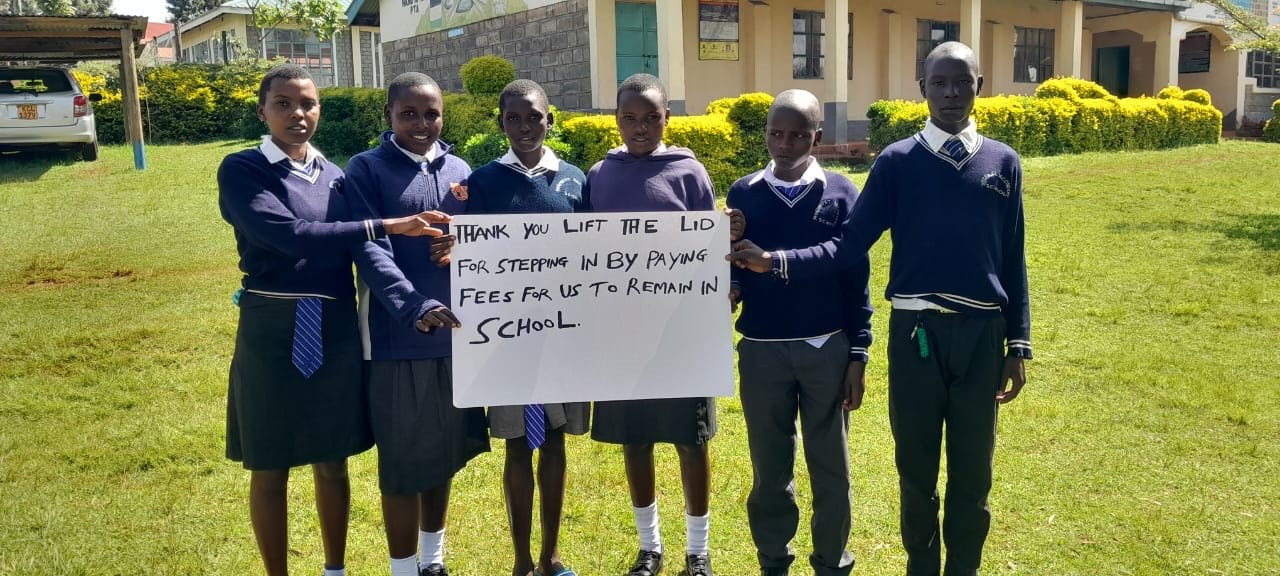 THANK YOU LIFT THE LID
FOR STEPPING IN BY PAYING
FEES FOR US TO REMAIN IN
SCHOOL.
SCHOOL